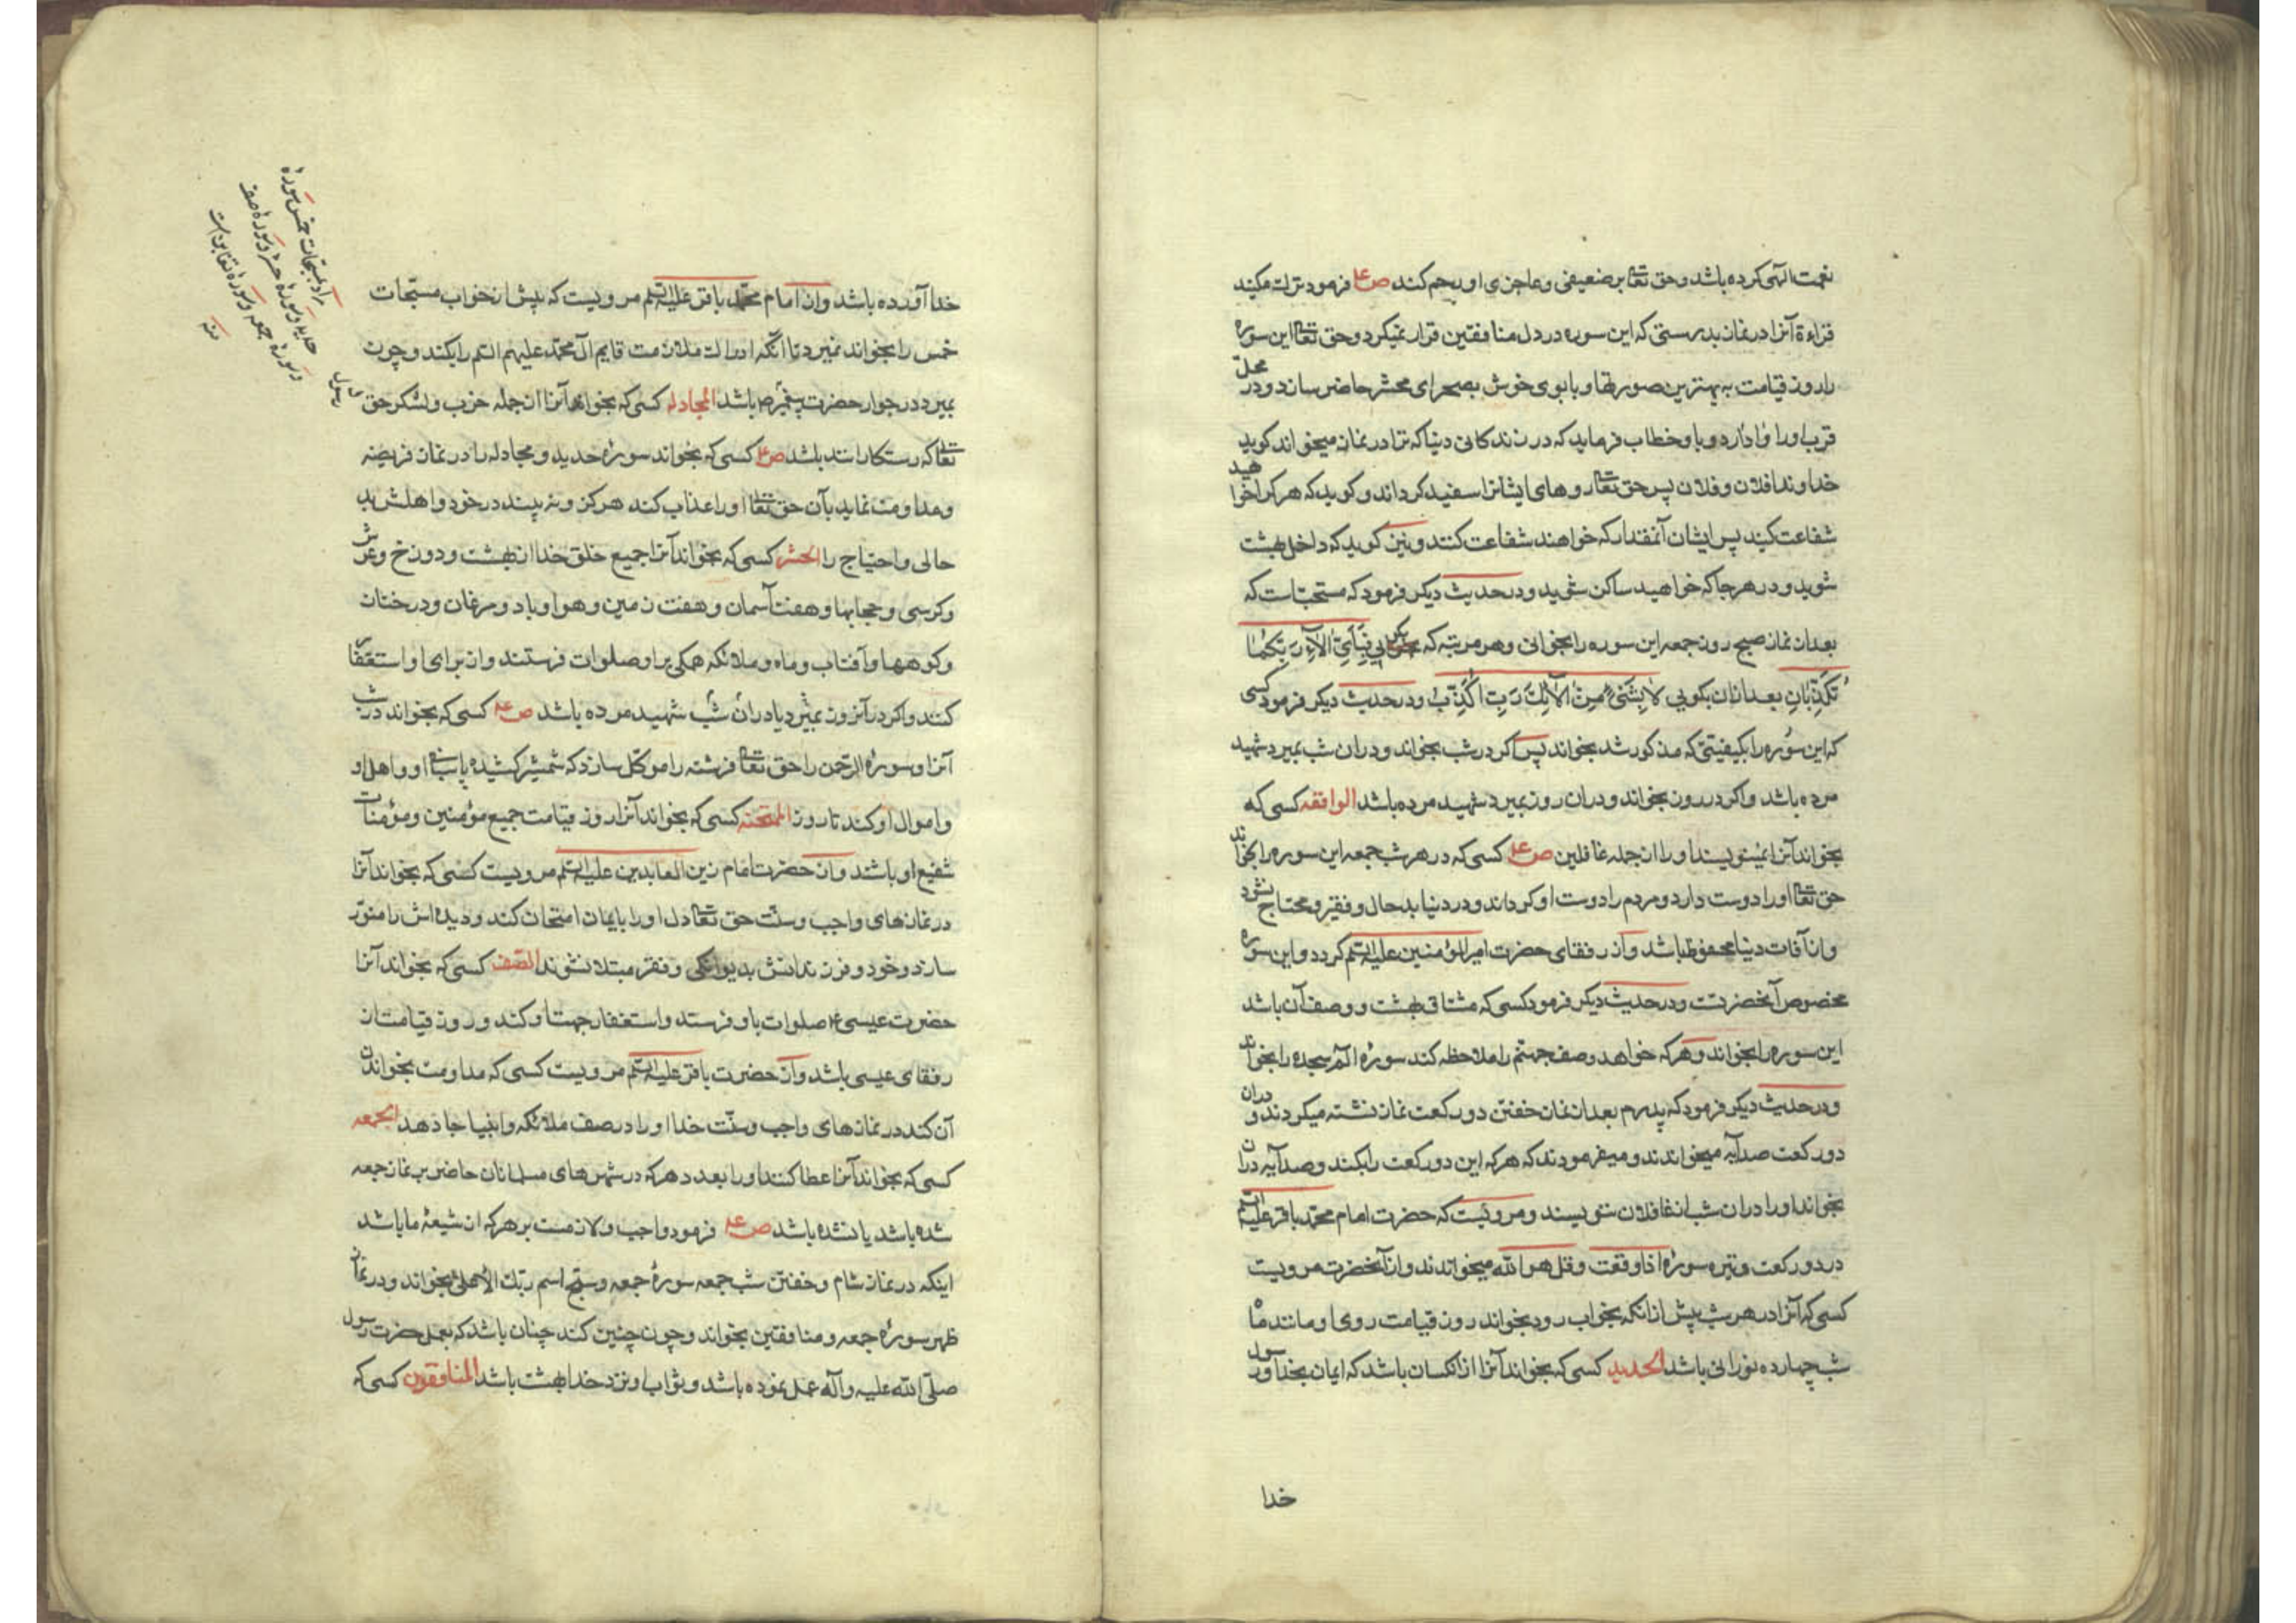 نعمت الهی کرده باشد و حق تعالی بر ضعیفی و عاجزی او رحم کند ص ع فرمود ترک مکنید
قراءة آنرا در نماز بدرستی که این سوره در دل منافقین قرار نمیگیرد و حق تعالی این سوره
را روز قیامت به بهترین صورتها و با بوی خوش بصحرای محشر حاضر سازد و در محل
قرب او را وا دارد و باو خطاب فرماید که در زندکانی دنیا که ترا در نماز میخواند کوید
خداوندا فلان و فلان پس حق تعالی روهای ایشانرا سفید کرداند و کوید که هر کرا خواهید
شفاعت کنید پس ایشان آنمقدار که خواهند شفاعت کنند و بس کوید که داخل بهشت
شوید و در هر جا که خواهید ساکن شوید و در حدیث دیکر فرمود که مستحبّ است که
بعد از نماز صبح روز جمعه این سوره را بخوانی و هر مرتبه که بکویی فَبِأَيِّ آلاءِ رَبِّكُما
تُكَذِّبَانِ بعد از ان بکویی لا بِشَئٍ مِنْ آلائِكَ رَبِّ أُكَذِّبُ و در حدیث دیکر فرمود کسی
که این سوره را بکیفیتی که مذکور شد بخواند پس اکر در شب بخواند و در ان شب بمیرد شهید
مرده باشد و اکر در روز بخواند و در ان روز بمیرد شهید مرده باشد الواقعه کسی که
بخواند آنرا ننویسند او را از جمله غافلین ص ع کسی که در هر شب جمعه این سوره را بخواند
حق تعالی او را دوست دارد و مردم را دوست او کرداند و در دنیا بد حال و فقیر و محتاج نشود
و از آفات دنیا محفوظ باشد و از رفقای حضرت امیر المؤمنین علیه السلم کردد و این سوره
مخصوص آنحضرتست و در حدیث دیکر فرمود کسی که مشتاق بهشت و وصف آن باشد
این سوره را بخواند و هر که خواهد وصف جهنّم را ملاحظه کند سورهٔ الم سجده را بخواند
و در حدیث دیکر فرمود که پدرم بعد از نماز خفتن دو رکعت نماز نشته میکردند و در ان
دو رکعت صد آیه میخواندند و میفرمودند که هر که این دو رکعت را بکند و صد آیه در ان
بخواند او را در ان شب از غافلان ننویسند و مرویست که حضرت امام محمّد باقر علیه السلم
در دو رکعت وتیره سورهٔ اذا وقعت و قل هو الله میخواندند و از آنحضرت مرویست
کسی که آنرا در هر شب پیش از انکه بخواب رود بخواند روز قیامت روی او مانند ماه
شب چهارده نورانی باشد الحدید کسی که بخواند آنرا از انکسان باشد که ایمان بخدا و رسول
خدا
خدا آورده باشد و از امام محمّد باقر علیه السلم مرویست که پیش از خواب مسبّحات
خمس را بخواند نمیرد تا آنکه ادراک ملازمت قایم آل محمّد علیهم السلم را بکند و چون
بمیرد در جوار حضرت پیغمبر ص باشد المجادله کسی که بخواند آنرا از جمله حزب و لشکر حق
تعالی که رستکارانند باشد ص ع کسی که بخواند سورهٔ حدید و مجادله را در نماز فریضه
و مداومت نماید بآن حق تعالی او را عذاب نکند هرکز و نه بیند در خود و اهلش بد
حالی و احتیاج را الحشر کسی که بخواند آنرا جمیع خلق خدا از بهشت و دوزخ و عرش
و کرسی و حجابها و هفت آسمان و هفت زمین و هوا و باد و مرغان و درختان
و کوهها و آفتاب و ماه و ملائکه همکی بر او صلوات فرستند و از برای او استغفار
کنند و اکر در آنروز بمیرد یا در ان شب شهید مرده باشد ص ع کسی که بخواند در شب
آنرا و سورهٔ الرّحمن را حق تعالی فرشته را موکّل سازد که شمشیر کشیده پاسبانی او و اهل او
و اموال او کند تا روز الممتحنه کسی که بخواند آنرا روز قیامت جمیع مؤمنین و مؤمنات
شفیع او باشند و از حضرت امام زین العابدین علیه السلم مرویست کسی که بخواند آنرا
در نمازهای واجب و سنّت حق تعالی دل او را بایمان امتحان کند و دیده اش را منوّر
سازد و خود و فرزندانش بدیوانکی و فقر مبتلا نشوند الصّف کسی که بخواند آنرا
حضرت عیسی ع صلوات باو فرستد و استغفار جهت او کند و روز قیامت از
رفقای عیسی باشد و از حضرت باقر علیه السلم مرویست کسی که مداومت بخواندن
آن کند در نمازهای واجب و سنّت خدا او را در صف ملائکه و انبیا جا دهد الجمعه
کسی که بخواند آنرا عطا کنند او را بعدد هر که در شهرهای مسلمانان حاضر بر نماز جمعه
شده باشد یا نشده باشد ص ع فرمود واجب و لازمست بر هر که از شیعهٔ ما باشد
اینکه در نماز شام و خفتن شب جمعه سورهٔ جمعه و سبّح اسم ربّک الاعلی بخواند و در نماز
ظهر سورهٔ جمعه و منافقین بخواند و چون چنین کند چنان باشد که بعمل حضرت رسول
صلّی الله علیه و آله عمل نموده باشد و ثواب او نزد خدا بهشت باشد المنافقون کسی که
مراد بمسبّحات خمس سورهٔ
حدید و سورهٔ حشر و سورهٔ صف
و سورهٔ جمعه و سورهٔ تغابن است
منه